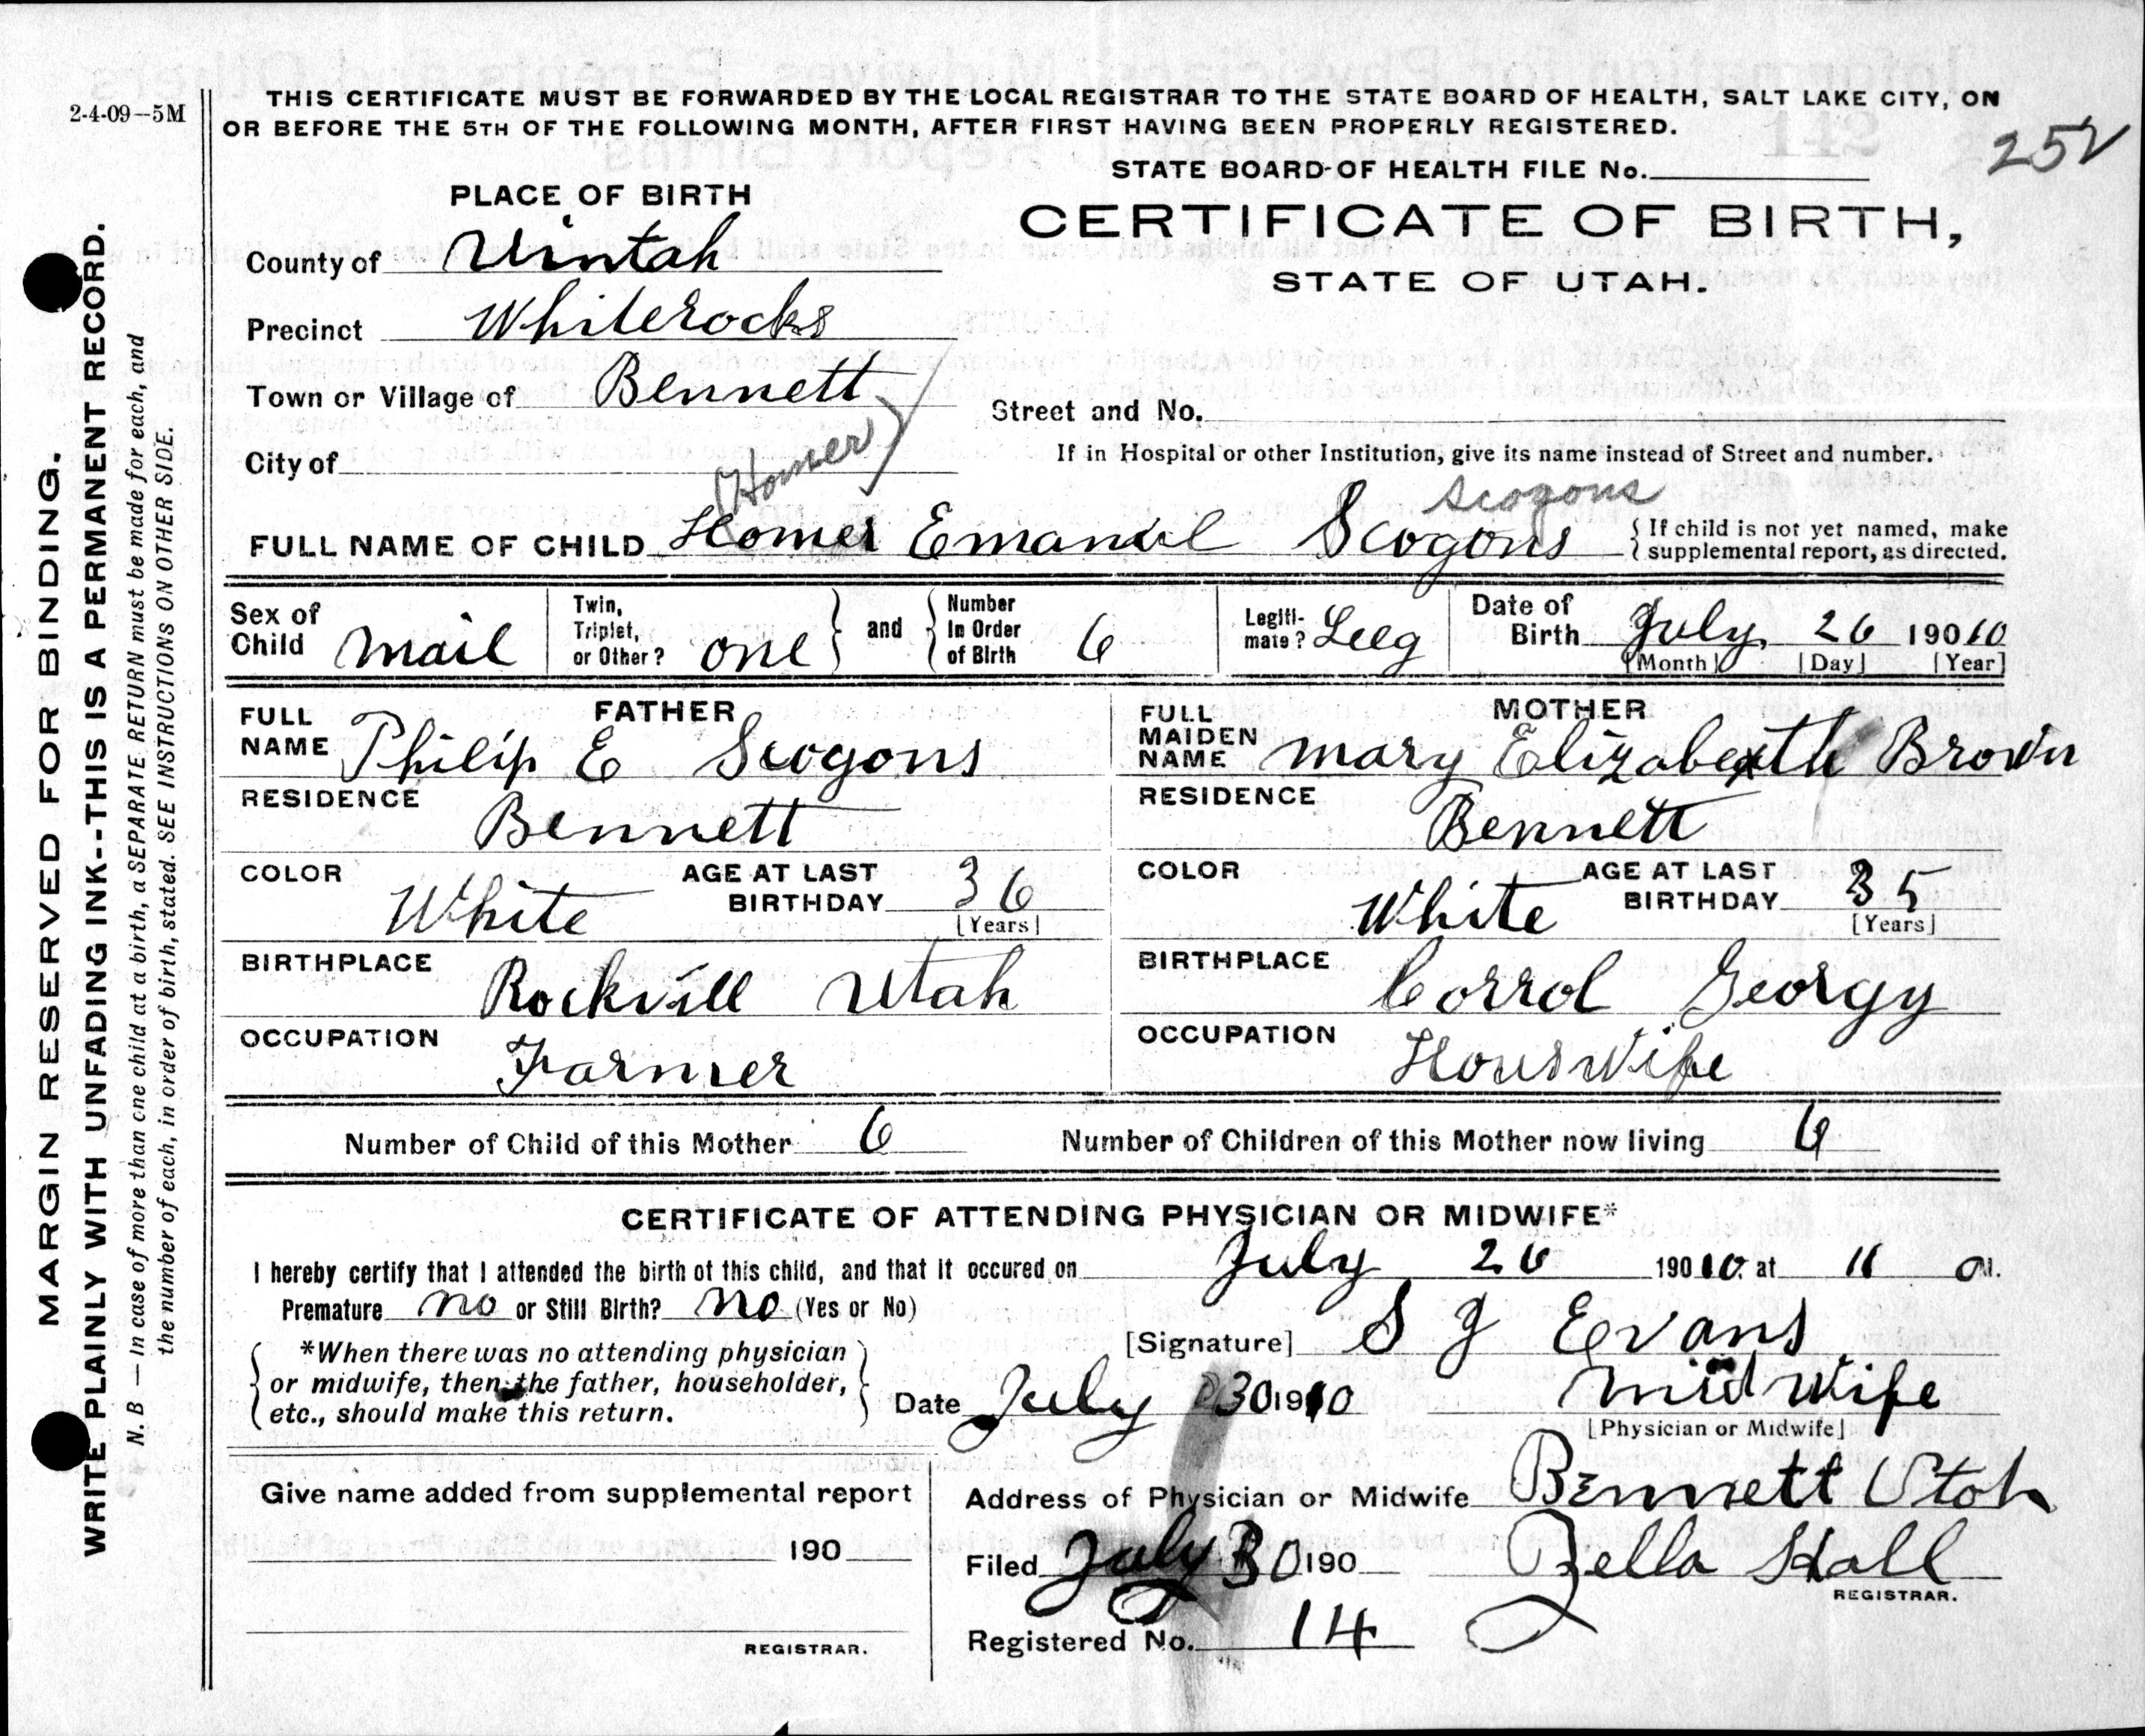 2-4-09—5M
THIS CERTIFICATE MUST BE FORWARDED BY THE LOCAL REGISTRAR TO THE STATE BOARD OF HEALTH, SALT LAKE CITY, ON
OR BEFORE THE 5TH OF THE FOLLOWING MONTH, AFTER FIRST HAVING BEEN PROPERLY REGISTERED.
252
STATE BOARD OF HEALTH FILE No.
CERTIFICATE OF BIRTH,
STATE OF UTAH.
PLACE OF BIRTH
County of Uintah
Precinct Whiterocks
Town or Village of Bennett
Street and No.
City of
If in Hospital or other Institution, give its name instead of Street and number.
(Homer)
Scogons
FULL NAME OF CHILD Homer Emanuel Scogons
{ If child is not yet named, make
supplemental report, as directed.
Sex of Child mail
Twin, Triplet, or Other? one } and { Number In Order of Birth 6
Legiti-mate? Leeg
Date of Birth July 26 19010
[Month] [Day] [Year]
FATHER
FULL NAME Philip E Scogons
RESIDENCE
Bennett
COLOR White AGE AT LAST BIRTHDAY 36
[Years]
BIRTHPLACE
Rockvill Utah
OCCUPATION
Farmer
MOTHER
FULL MAIDEN NAME mary Elizabexth Brown
RESIDENCE
Bennett
COLOR White AGE AT LAST BIRTHDAY 35
[Years]
BIRTHPLACE
Corrol Georgy
OCCUPATION
Hourwife
Number of Child of this Mother 6 Number of Children of this Mother now living 6
CERTIFICATE OF ATTENDING PHYSICIAN OR MIDWIFE*
I hereby certify that I attended the birth of this child, and that it occured on July 26 19010. at 11 a M.
Premature no or Still Birth? no (Yes or No)
[Signature] S J Evans
{ *When there was no attending physician
or midwife, then the father, householder,
etc., should make this return. }
Date July 30 1910 midwife
[Physician or Midwife]
Give name added from supplemental report
190
REGISTRAR.
Address of Physician or Midwife Bennett Utah
Filed July 30 190 Zella Hall
REGISTRAR.
Registered No. 14
MARGIN RESERVED FOR BINDING.
WRITE PLAINLY WITH UNFADING INK--THIS IS A PERMANENT RECORD.
N. B — In case of more than one child at a birth, a SEPARATE RETURN must be made for each, and
the number of each, in order of birth, stated. SEE INSTRUCTIONS ON OTHER SIDE.